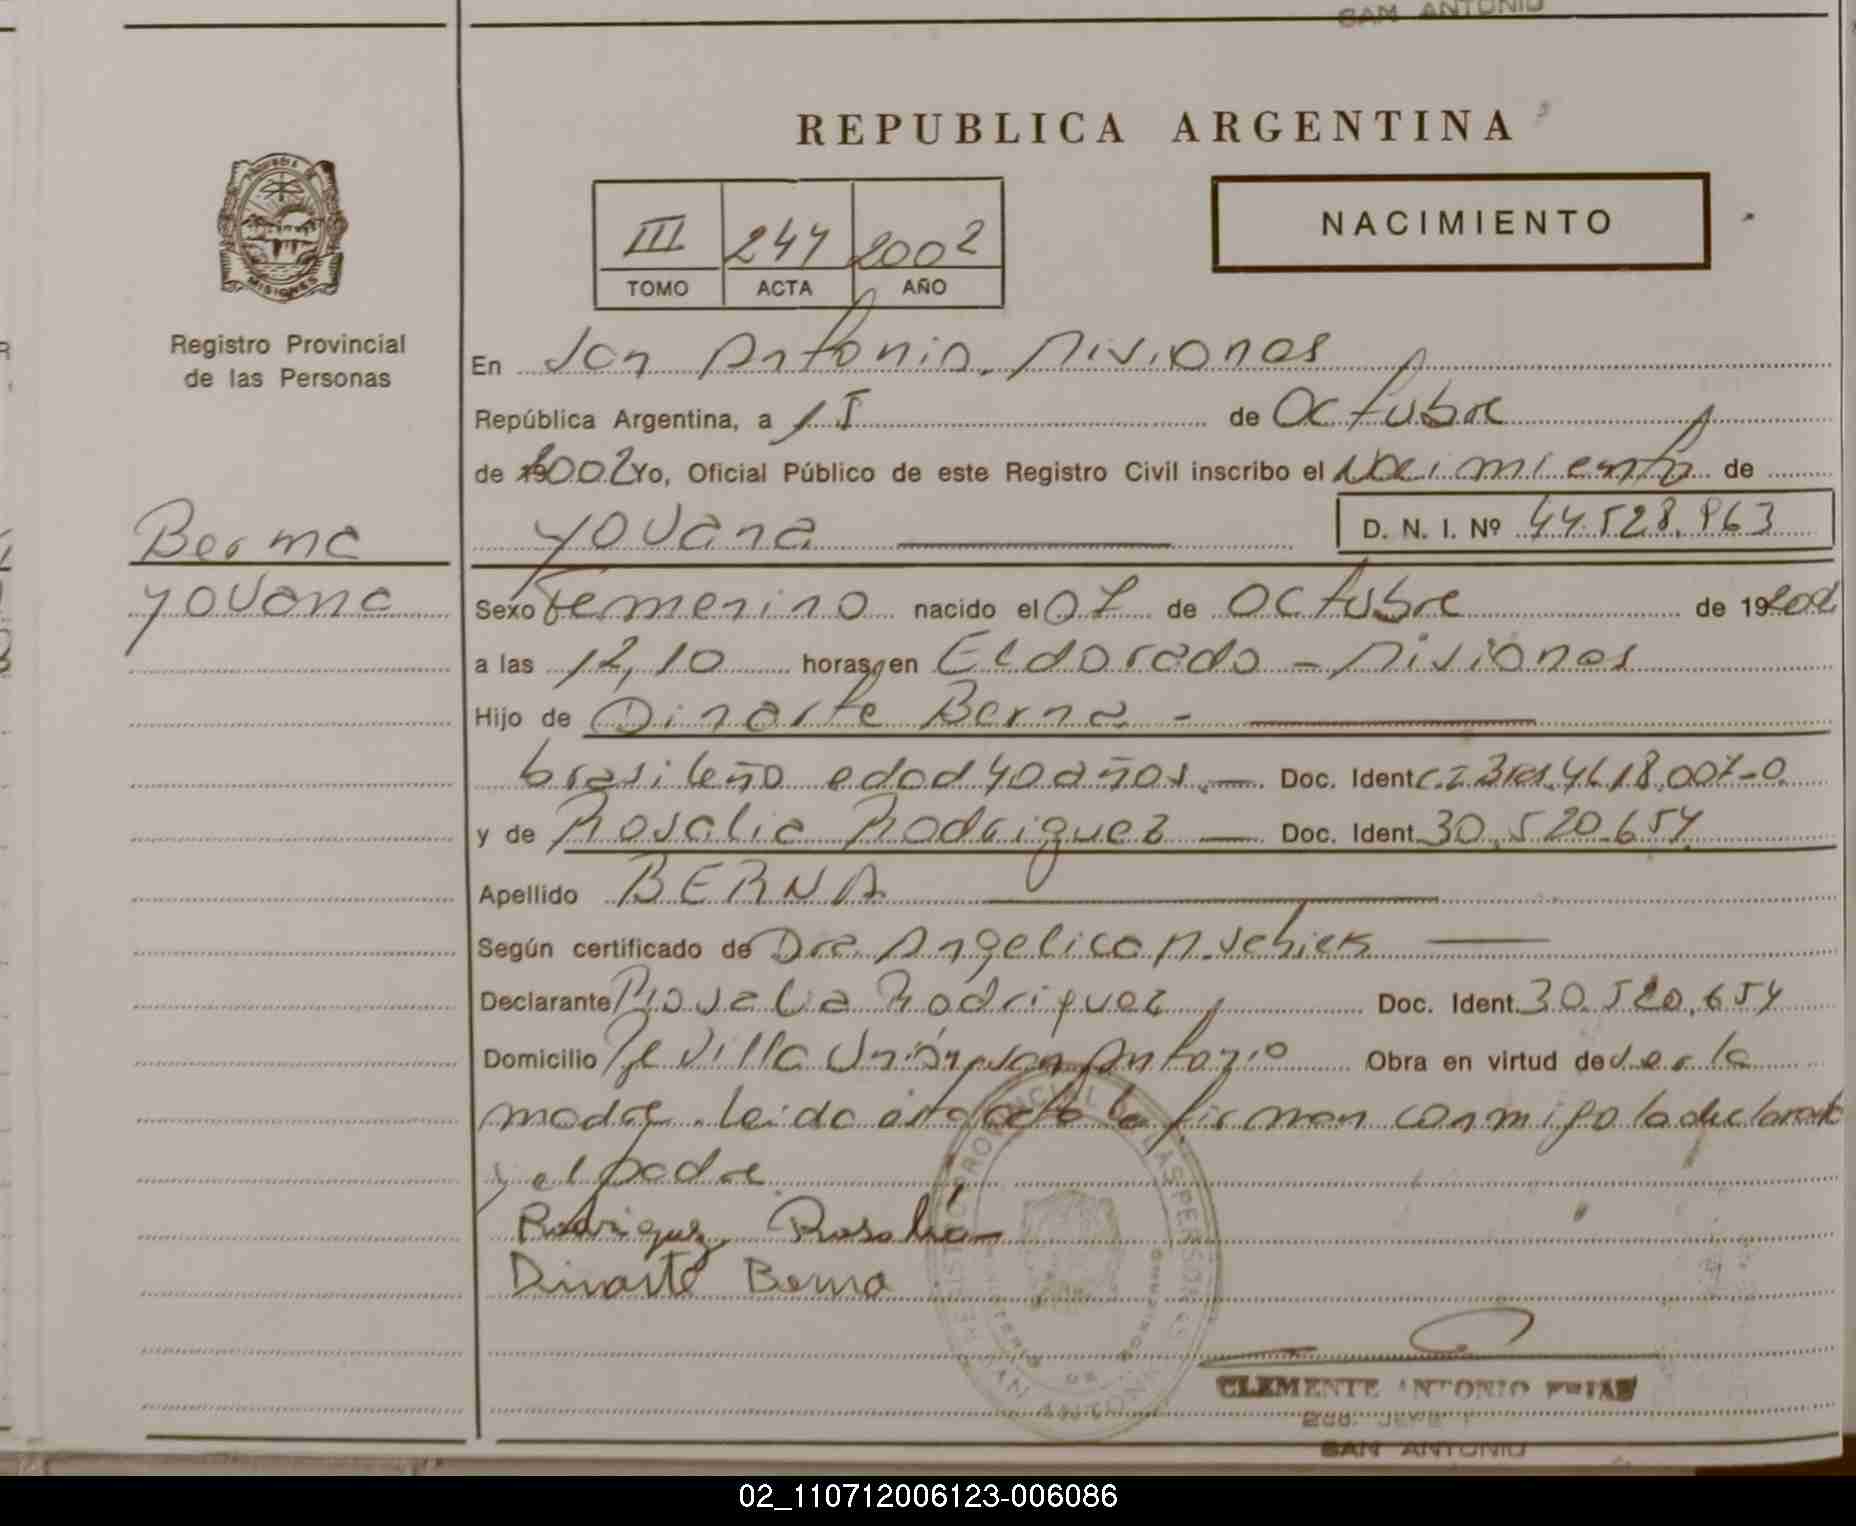 SAN ANTONIO
REPUBLICA ARGENTINA
NACIMIENTO
III 247 2002
TOMO ACTA AÑO
MISIONES
Registro Provincial
de las Personas
En San Antonio, Misiones
República Argentina, a 15 de Octubre
de 2002 Yo, Oficial Público de este Registro Civil inscribo el Nacimiento de
Berna
Yovana
Yovana D. N. I. Nº 44.528.963
Sexo Femenino nacido el 07 de Octubre de 19 2002
a las 12,10 horas, en Eldorado - Misiones
Hijo de Dinarte Berna -
brasileño edad 40 años. Doc. Ident. 4618.007-0
y de Rosalia Rodriguez Doc. Ident. 30.520.654
Apellido BERNA
Según certificado de Dra. Angelica M. Schiek
Declarante Rosalia Rodriguez Doc. Ident. 30.520.654
Domicilio Villa Unión, San Antonio Obra en virtud de ser la
madre. Leida esta acta la firman conmigo la declarante
y el padre
Rodriguez Rosalia
Dinarte Berna
CLEMENTE ANTONIO FRIAS
SAN ANTONIO
02_110712006123-006086